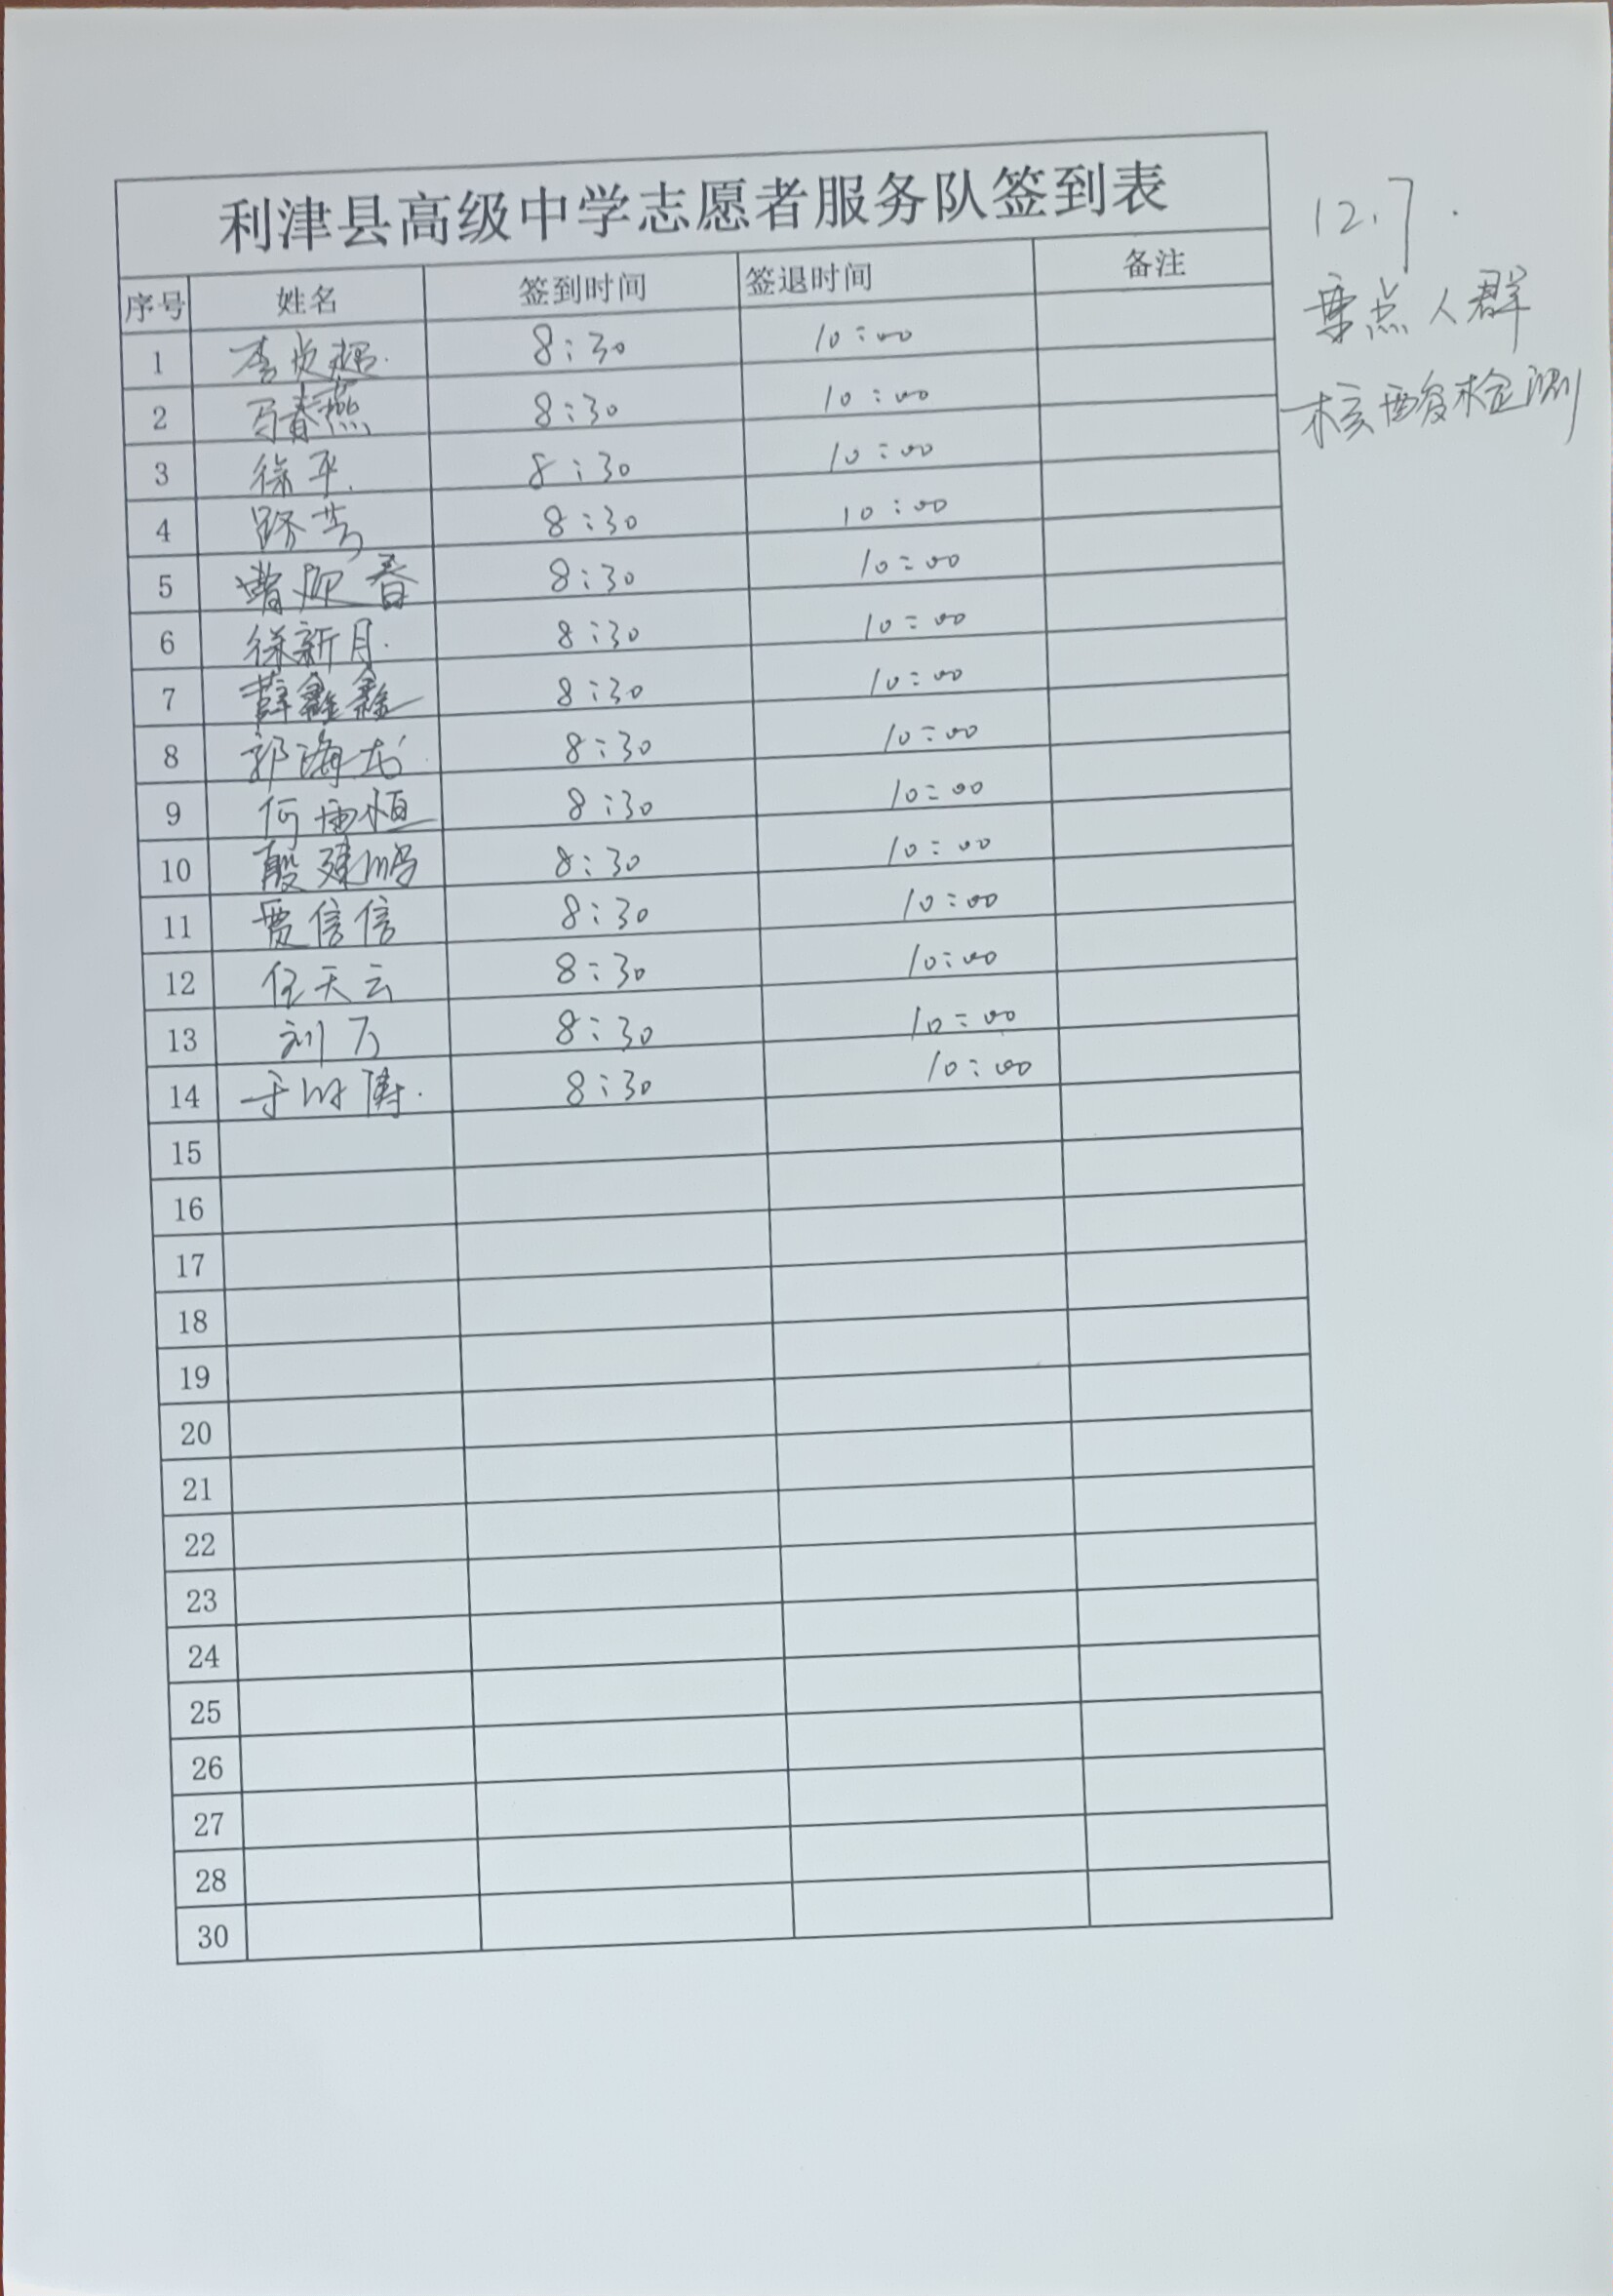 利津县高级中学志愿者服务队签到表
12.7.
重点人群
核酸检测
序号 姓名 签到时间 签退时间 备注
1 8:30 10:00
2 马春燕 8:30 10:00
3 徐平 8:30 10:00
4 路芳 8:30 10:00
5 曹迎春 8:30 10:00
6 徐新月 8:30 10:00
7 薛鑫鑫 8:30 10:00
8 郭海龙 8:30 10:00
9 何雨恒 8:30 10:00
10 殷建鹏 8:30 10:00
11 贾信信 8:30 10:00
12 任天云 8:30 10:00
13 刘 8:30 10:00
14 8:30 10:00
15
16
17
18
19
20
21
22
23
24
25
26
27
28
30